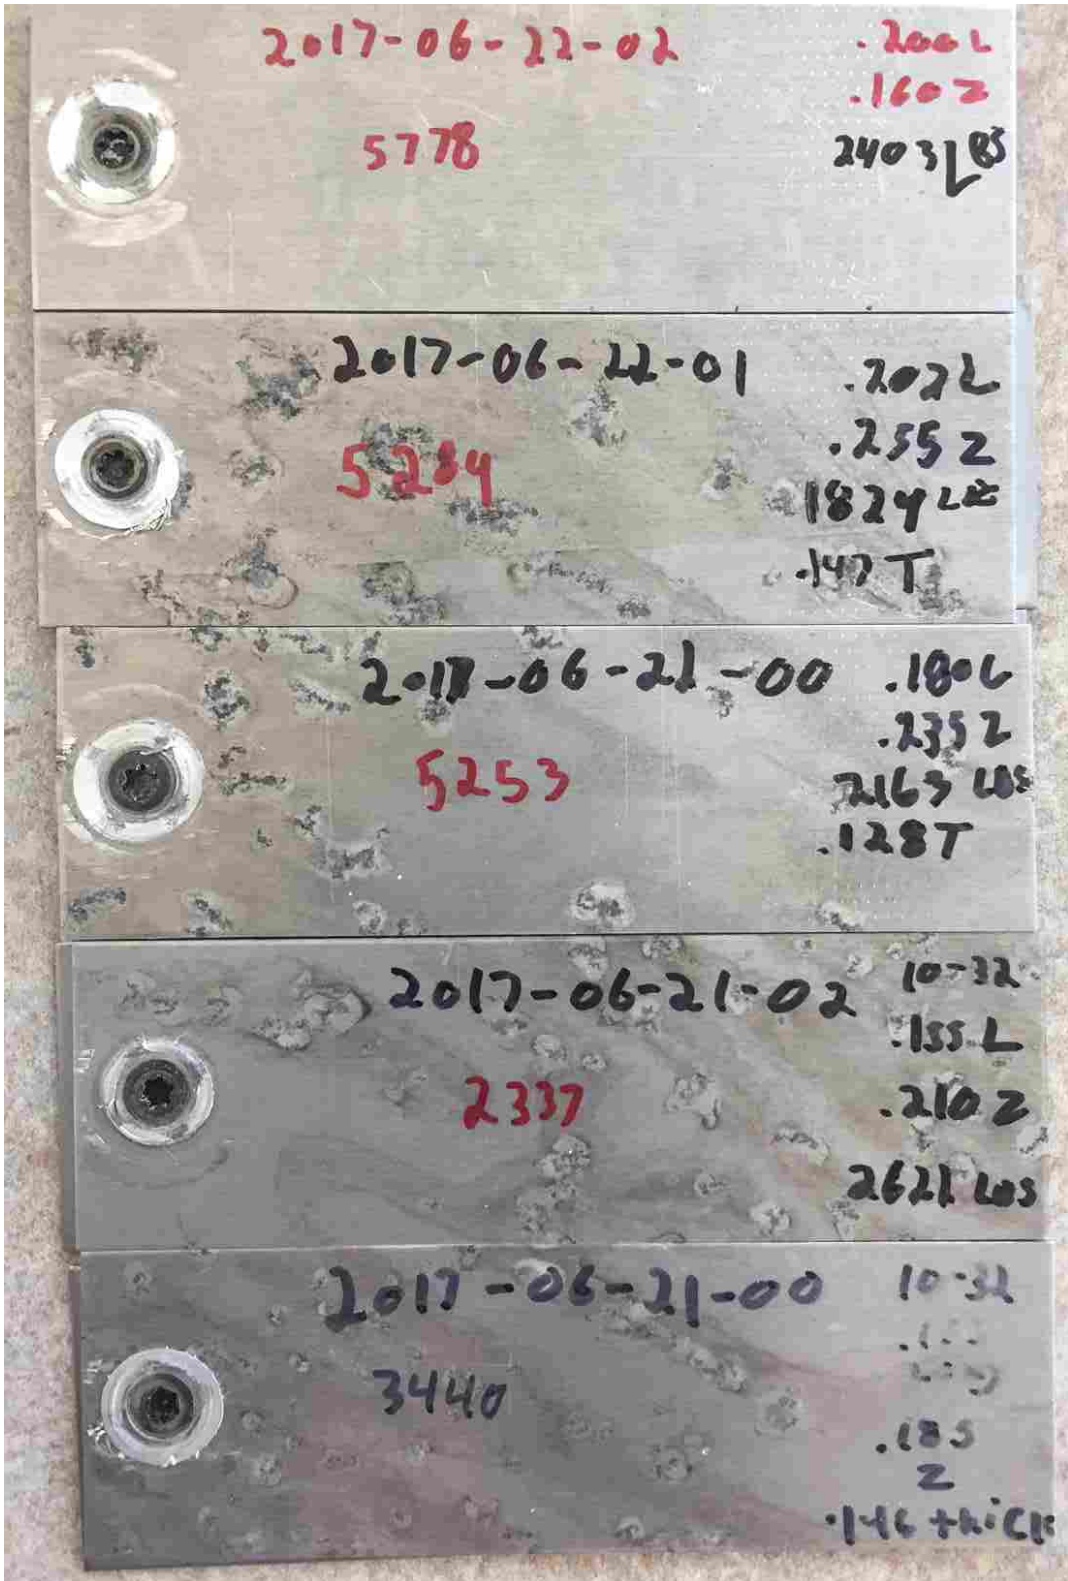 2017-06-22-02
.200 L
.160 Z
5778
2403 LBS
2017-06-22-01
.202 L
5284
.255 Z
1824 LBS
.147 T
2017-06-21-00
.180 L
.235 Z
5253
2163 LBS
.128 T
2017-06-21-02
10-32
.155 L
2337
.210 Z
2621 LBS
2017-06-21-00
10-32
3440
.185
Z
.146 thick